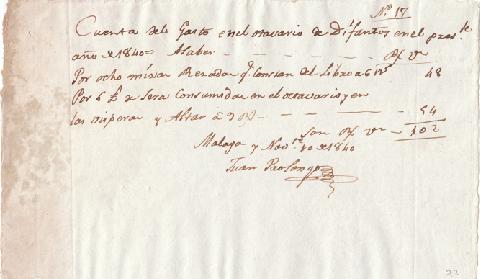 Nº 17
Cuenta del Gasto en el otavario de Difuntos en el pres.te
año de 1840= A saber - - - - Rs. Vn
Por ocho misas Rezadas q. constan del Libro a 6 rs 48
Por 6 de Sera Consumidas en el otavario y en
las visperas y Altar a 9 rs - - - - 54
son Rs Vn - 102
Malaga y Nov.e 10 de 1840
Juan Prolongo
22